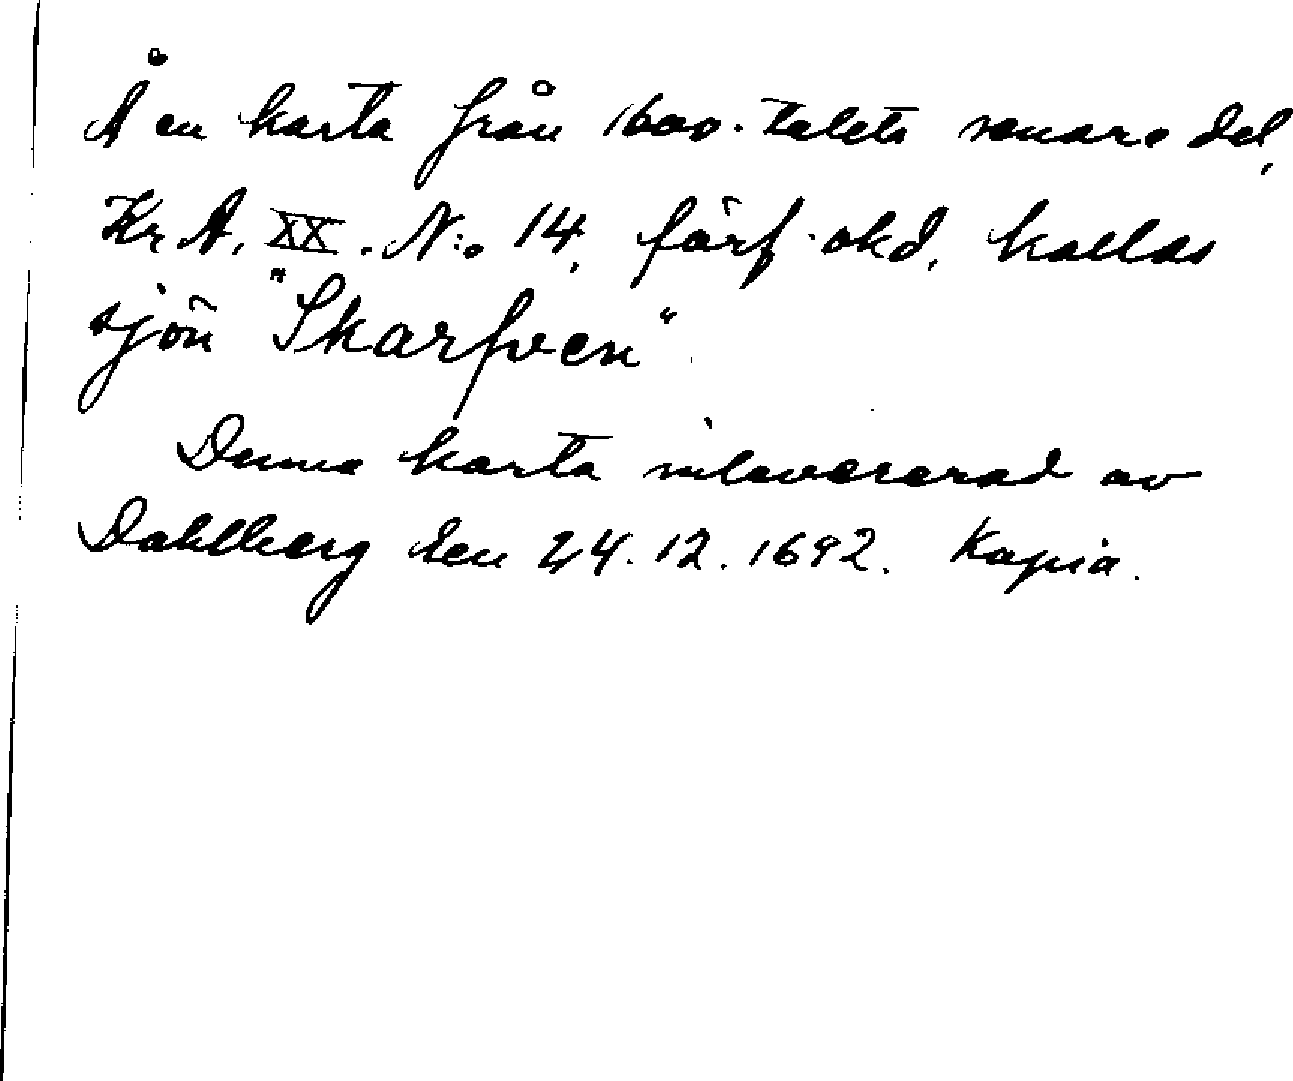 Å en karta från 1600-talets senare del,
Kr A. XX. N:o 14, förf. okd. kallas
sjön "Skarfven"
Denna karta inlevererad av
Dahlberg den 24.12.1692. Kopia.